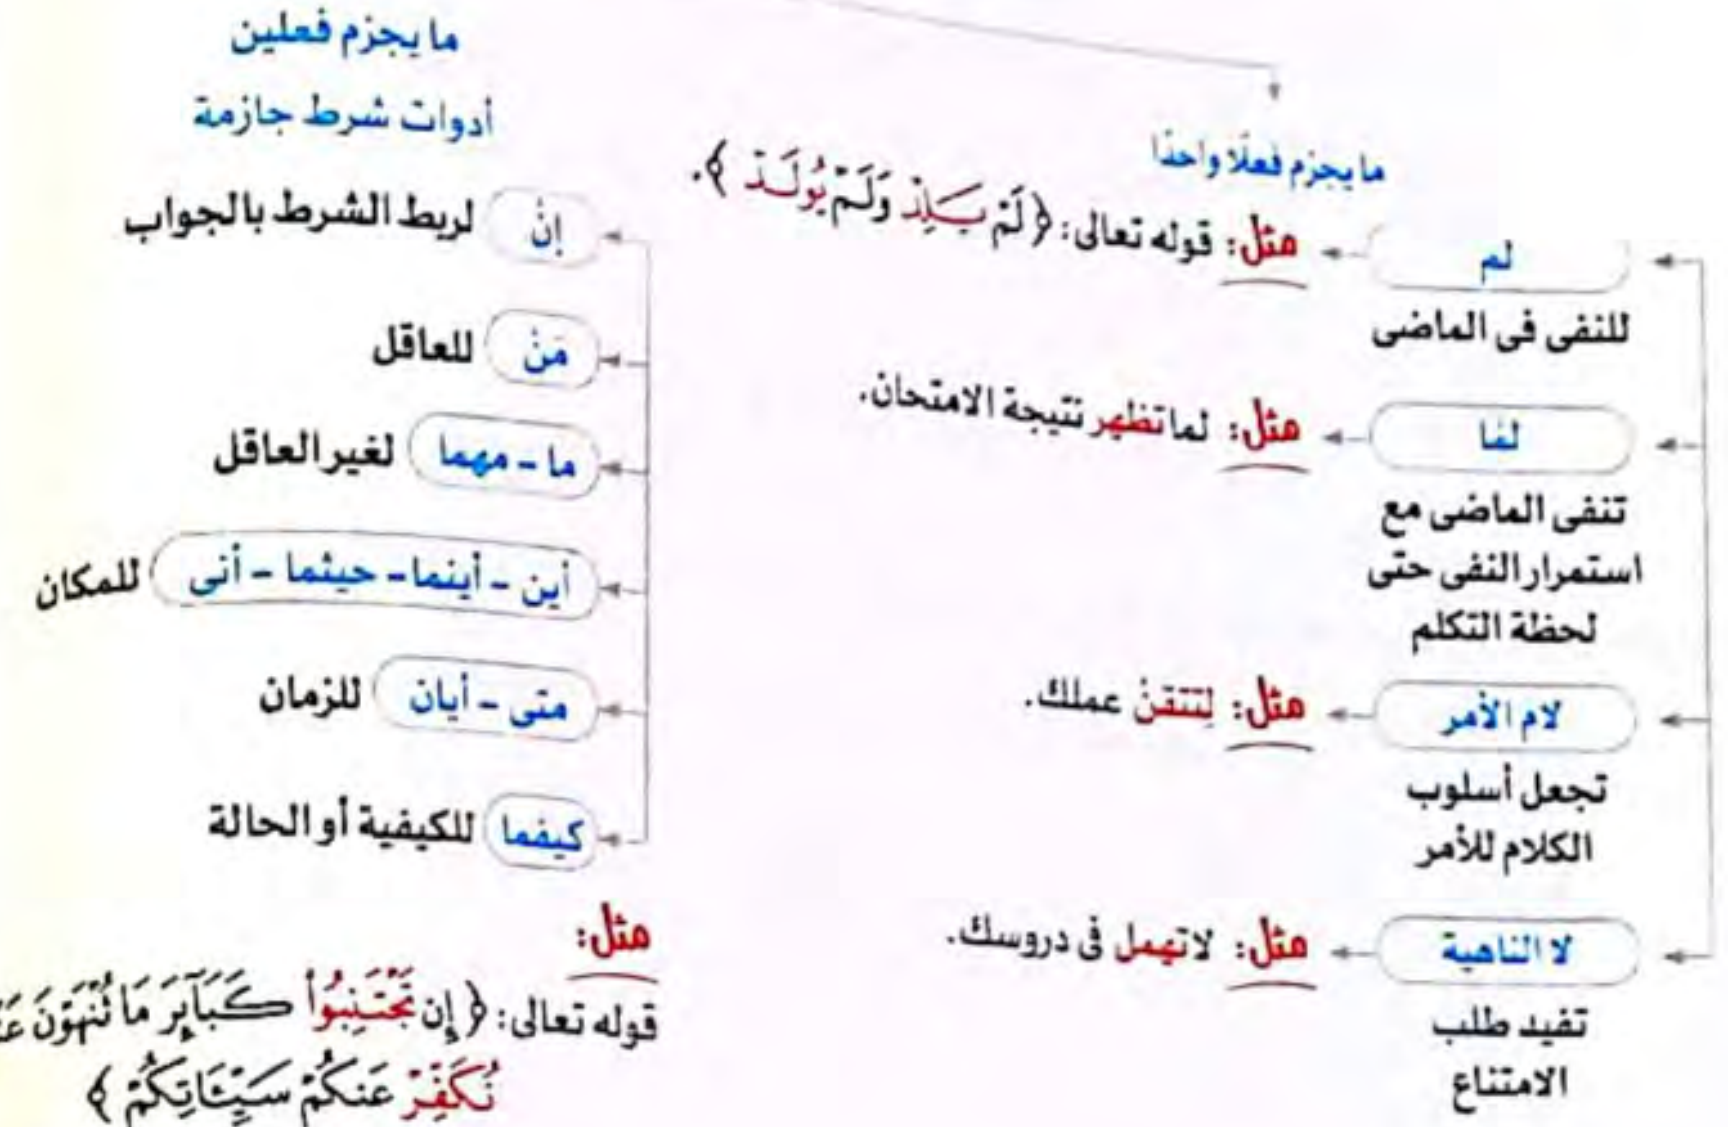 ما يجزم فعلًا واحدًا
لم
مثل: قوله تعالى: ﴿ لَمْ يَلِدْ وَلَمْ يُولَدْ ﴾.
للنفى فى الماضى
لمَّا
مثل: لما تظهر نتيجة الامتحان.
تنفى الماضى مع
استمرار النفى حتى
لحظة التكلم
لام الأمر
مثل: لِتتقنْ عملك.
تجعل أسلوب
الكلام للأمر
لا الناهية
مثل: لا تهمل فى دروسك.
تفيد طلب
الامتناع
ما يجزم فعلين
أدوات شرط جازمة
إنْ لربط الشرط بالجواب
مَنْ للعاقل
ما - مهما لغير العاقل
أين - أينما - حيثما - أنى للمكان
متى - أيان للزمان
كيفما للكيفية أو الحالة
مثل:
قوله تعالى: ﴿ إِن تَجْتَنِبُوا۟ كَبَآئِرَ مَا تُنْهَوْنَ
نُكَفِّرْ عَنكُمْ سَيِّئَاتِكُمْ ﴾